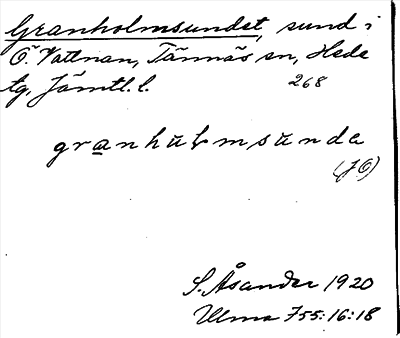 Granholmsundet, sund i
Ö. Vattnan, Tännäs sn, Hede
tg, Jämtl. l. 268
granhu̇ɫmsu̇nda
(JÖ)
S. Åsander 1920
Ulma 755:16:18